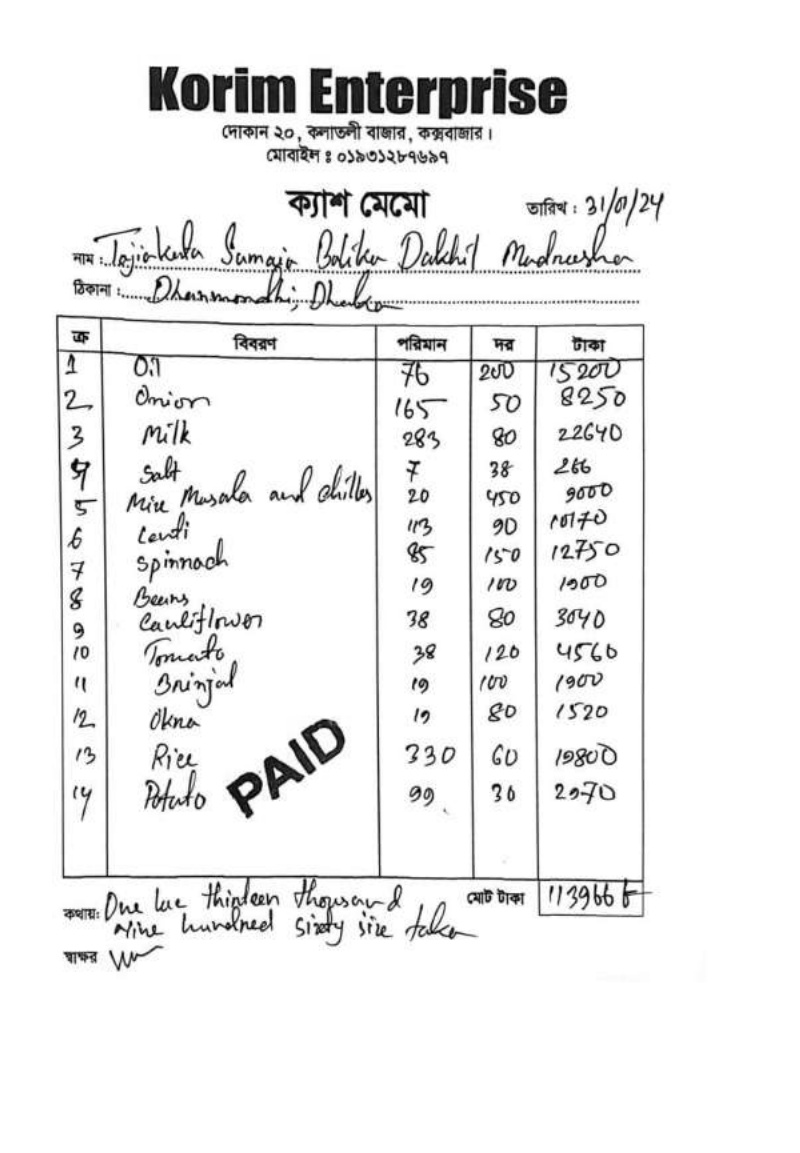 Korim Enterprise
দোকান ২০, কলাতলী বাজার, কক্সবাজার।
মোবাইল ঃ ০১৯৩১২৮৭৬৯৭
ক্যাশ মেমো
তারিখ : 31/01/24
নাম : Tajiakata Samaja Balika Dakhil Madrasha
ঠিকানা : Dhanmondhi, Dhaka
ক্র বিবরণ পরিমান দর টাকা
1 Oil 76 200 15200
2 Onion 165 50 8250
3 Milk 283 80 22640
4 Salt 7 38 266
5 Mix Masala and chilles 20 450 9000
6 Lenti 113 90 10170
7 Spinnach 85 150 12750
8 Beans 19 100 1900
9 Cauliflower 38 80 3040
10 Tomato 38 120 4560
11 Brinjal 19 100 1900
12 Okra 19 80 1520
13 Rice 330 60 19800
14 Potato 99 30 2970
PAID
মোট টাকা 113966 ৳
কথায়: One lac thirteen thousand
Nine hundred sixty six taka
স্বাক্ষর